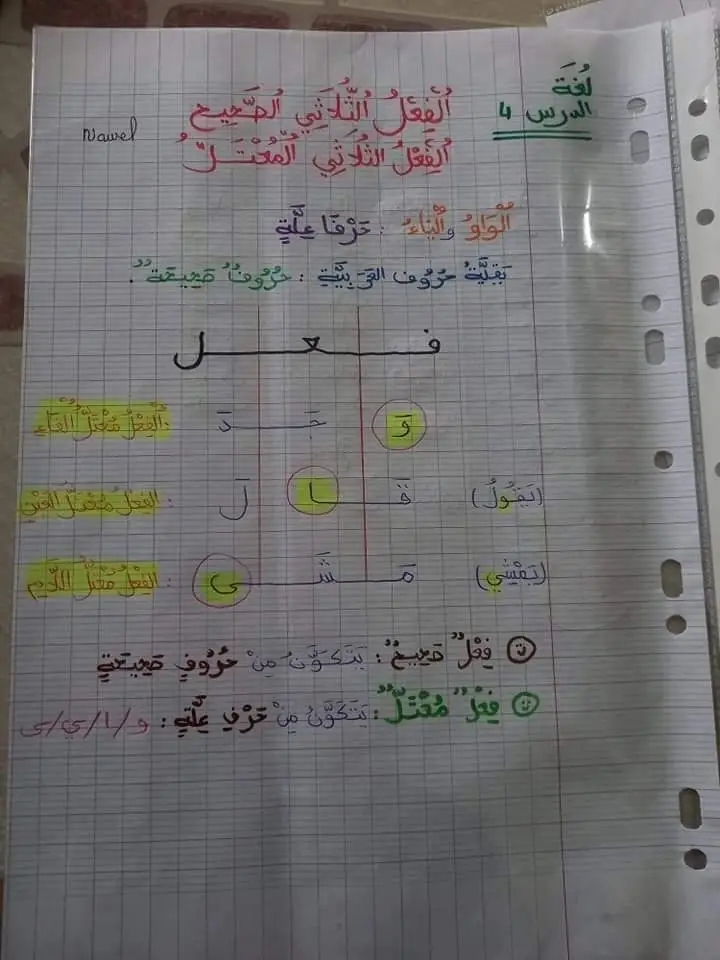 لُغَة
الدرس 4
الفِعْلُ الثُّلَاثِي الصَّحِيح
Nawel
الفِعْلُ الثُّلَاثِي الْمُعْتَلُّ
الْوَاوُ والْيَاءُ : حَرْفَا عِلَّةٍ
بَقِيَّةُ حُرُوف العَرَبِيَّةِ : حُرُوفٌ صَحِيحَةٌ.
فـعـل
وَ جَـدَ : الْفِعْلُ مُعْتَلُّ الْفَاءِ
(يَقُولُ) قَـا لَ : الفِعْلُ مُعْتَلُّ العَيْنِ
(يَمْشِي) مَـشَـى : الفِعْلُ مُعْتَلُّ اللَّامِ
فِعْلٌ صَحِيحٌ : يَتَكَوَّنُ مِنْ حُرُوفٍ صَحِيحَةٍ
فِعْلٌ مُعْتَلٌّ : يَتَكَوَّنُ مِنْ حَرْفِ عِلَّةٍ : و/ا/ي/ى